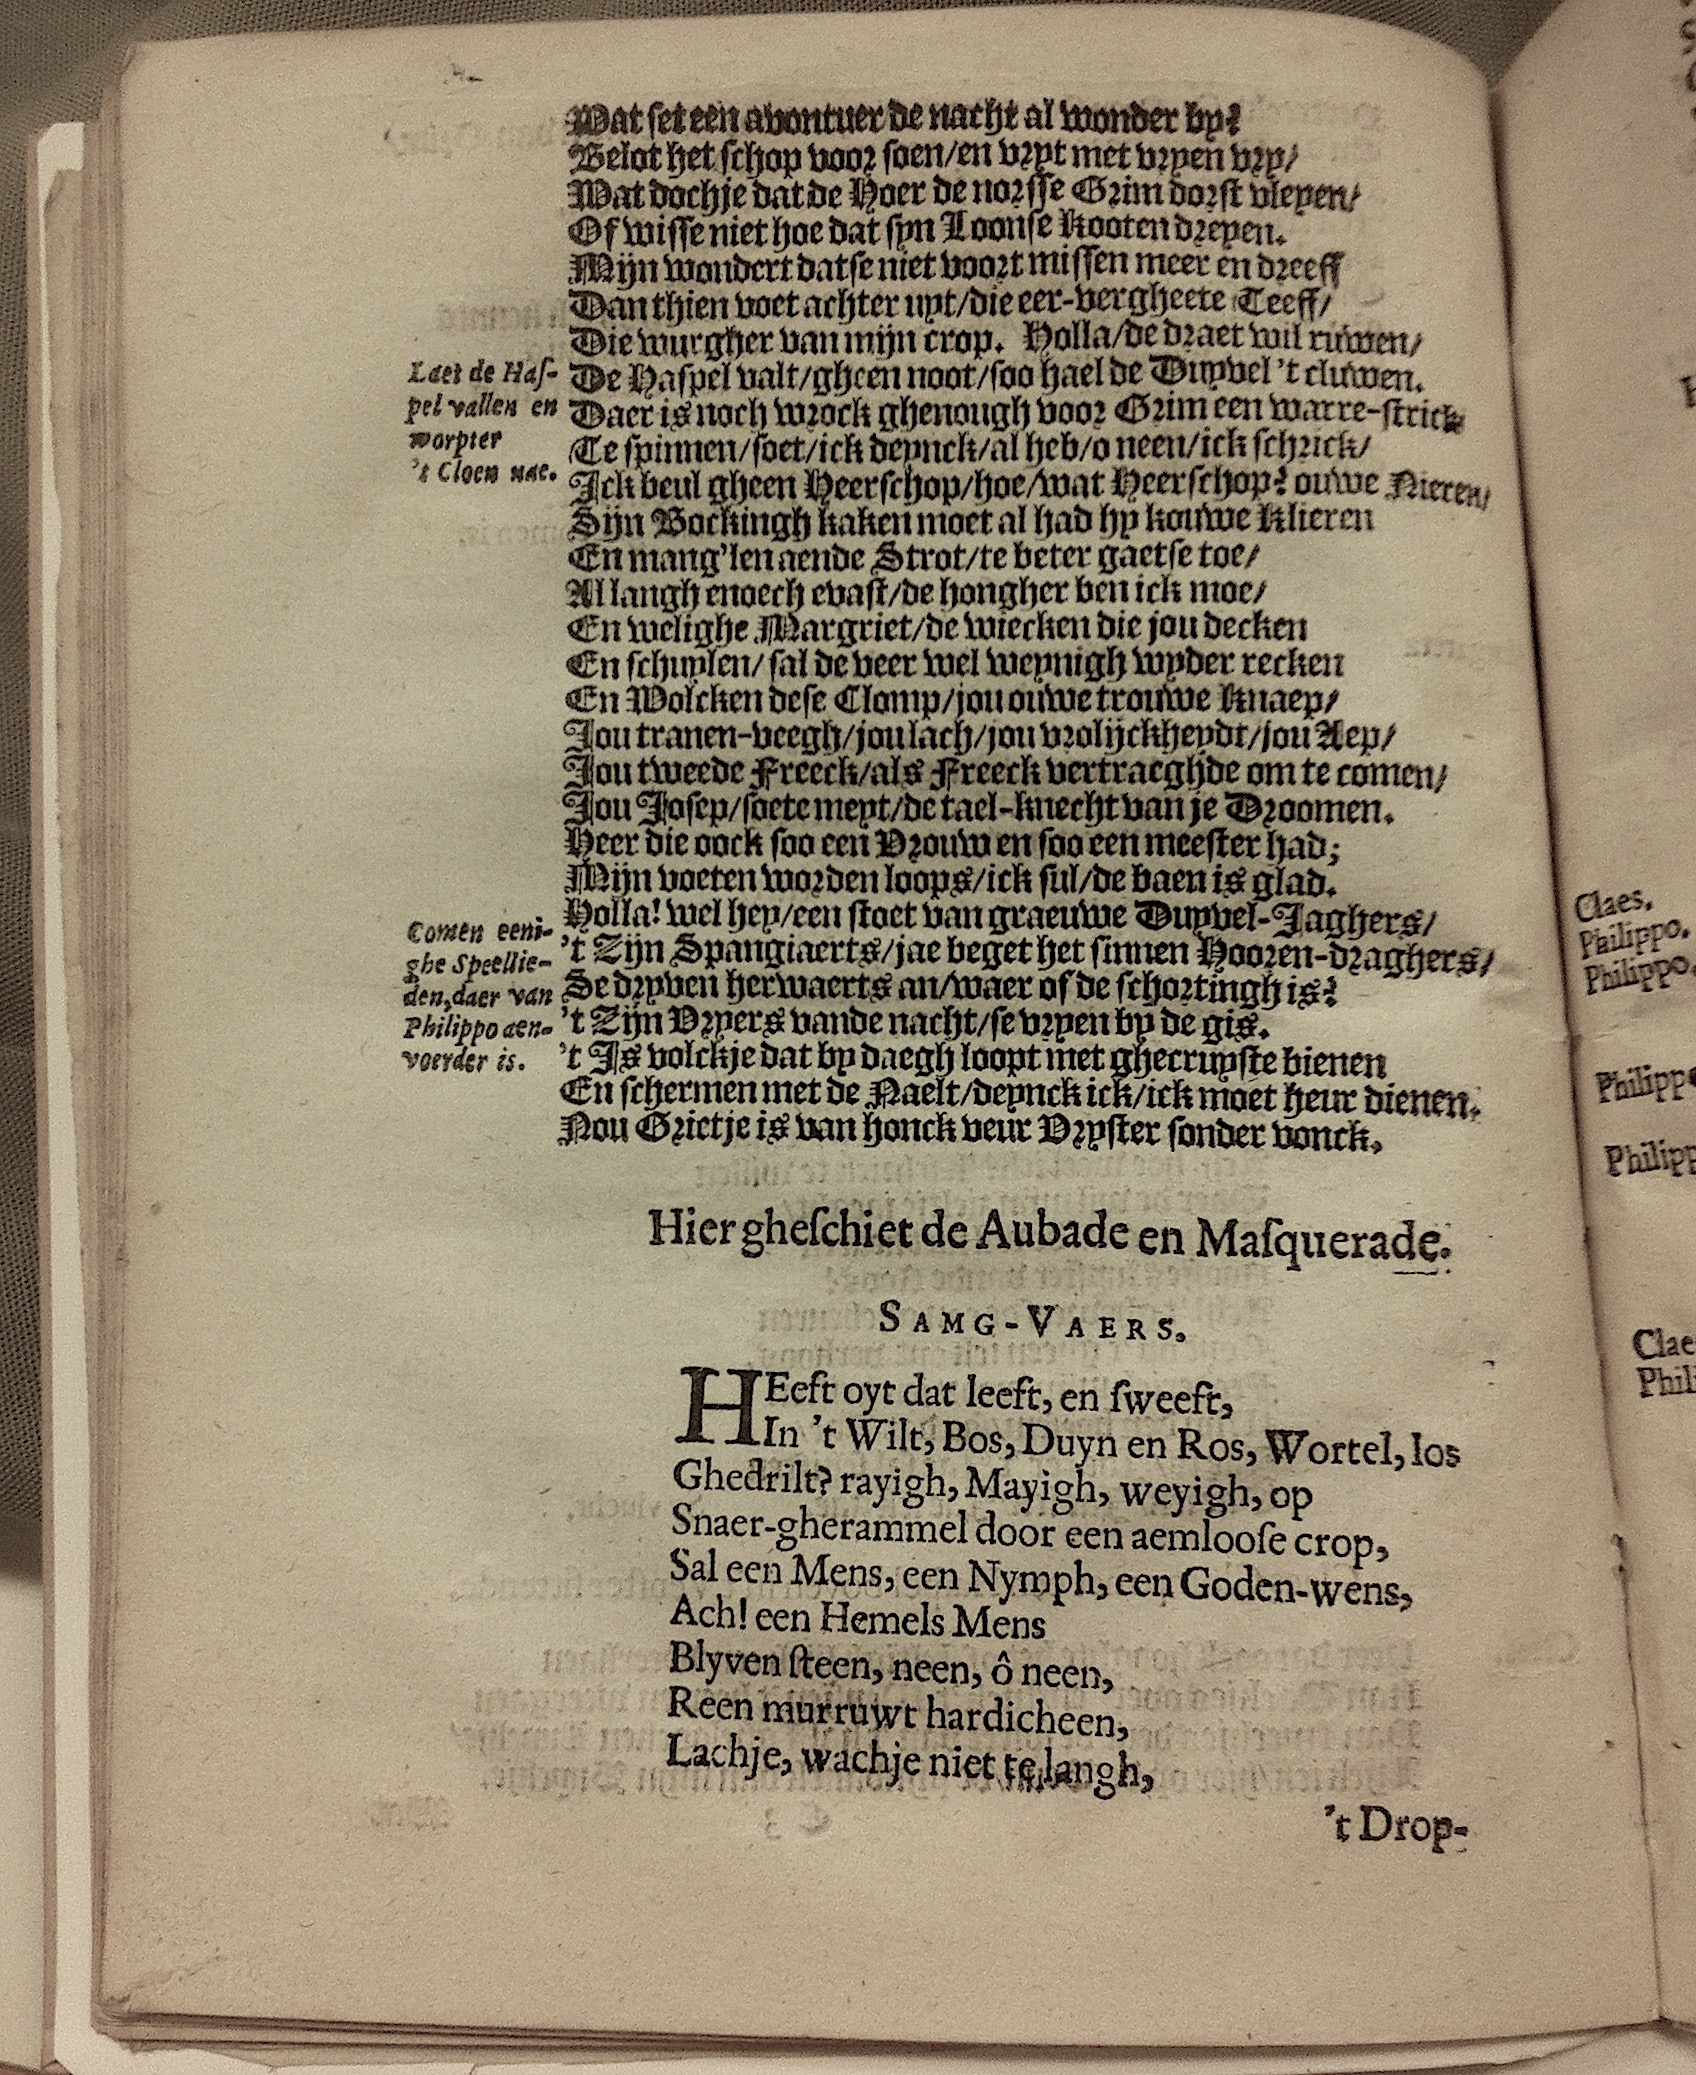 Wat set een abontuer de nacht al wonder by?
Belot het schop voor soen/en vrpt met vryen vry/
Wat dochje dat de Hoer de norsse Grim dorst vleyen/
Of wisse niet hoe dat syn Loonse kooten dreyen.
Mijn wondert datse niet voort missen meer en dreeff
Dan thien voet achter uyt/die eer-vergheete Teeff/
Die wurgher van mijn crop. Holla/de draet wil ruwen/
Laet de Haſ-
pel vallen en
worpter
't Cloen nae.
De Haspel valt/gheen noot/soo hael de Duyvel 't cluwen.
Daer is noch wrock ghenough voor Grim een warre-strick
Te spinnen/soet/ick deynck/al heb/o neen/ick schrick/
Ick beul gheen Heerschop/hoe/wat Heerschop? ouwe Nieren/
Sijn Bockingh kaken moet al had hy kouwe klieren
En mang'len aende Strot/te beter gaetse toe/
Al langh enoech evast/de hongher ben ick moe/
En welighe Margriet/de wiecken die jou decken
En schuylen/ sal de veer wel weynigh wyder recken
En Wolcken dese Clomp/jou ouwe trouwe knaep/
Jou tranen-veegh/jou lach/jou vrolijckheydt/jou Aep/
Jou tweede Freeck/als Freeck vertraeghde om te comen/
Jou Josep/soete meyt/de tael-knecht van je Droomen.
Heer die oock soo een Vrouw en soo een meester had;
Mijn voeten worden loops/ick sul/de baen is glad.
Comen eeni-
ghe Speellie-
den, daer van
Philippo aen-
voerder is.
Holla! wel hey/een stoet van graeuwe Duyvel-Jaghers/
't Zijn Spangiaerts/jae beget het sinnen Hooren-draghers/
Se dryven herwaerts an/waer of de schortingh is?
't Zijn Vryers vande nacht/se vryen by de gis.
't Is volckje dat by daegh loopt met ghecruyste bienen
En schermen met de Naelt/deynck ick/ick moet heur dienen.
Nou Grietje is van honck veur Vryster sonder vonck.
Hier gheſchiet de Aubade en Maſquerade.
SAMG-VAERS.
HEeft oyt dat leeft, en ſweeft,
In 't Wilt, Bos, Duyn en Ros, Wortel, los
Ghedrilt? rayigh, Mayigh, weyigh, op
Snaer-gherammel door een aemlooſe crop,
Sal een Mens, een Nymph, een Goden-wens,
Ach! een Hemels Mens
Blyven ſteen, neen, ô neen,
Reen murruwt hardicheen,
Lachje, wachje niet te langh,
't Drop-
Claes.
Philippo.
Philippo.
Philippo
Philipp
Claes
Phil